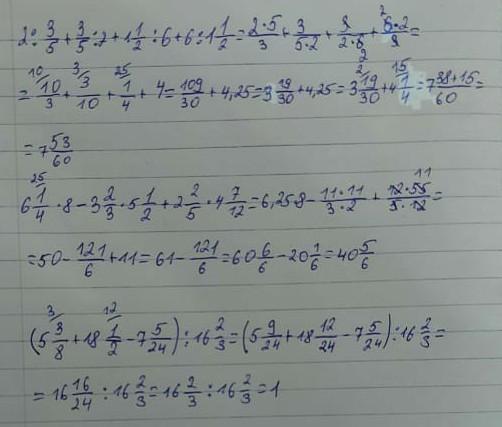 2:3/5+3/5:2+1 1/2:6+6:1 1/2=2·5/3+3/5·2+3/2·6+6·2/3=
=10/3+3/10+1/4+4=109/30+4,25=3 19/30+4,25=3 19/30+4 1/4=7 38+15/60=
=7 53/60
6 1/4·8-3 2/3·5 1/2+2 2/5·4 7/12=6,25·8-11·11/3·2+12·55/5·12=
=50-121/6+11=61-121/6=60 6/6-20 1/6=40 5/6
(5 3/8+18 1/2-7 5/24):16 2/3=(5 9/24+18 12/24-7 5/24):16 2/3=
=16 16/24:16 2/3=16 2/3:16 2/3=1